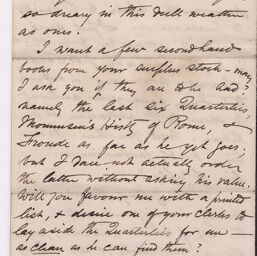 so dreary in this dull weather
as ones!
I want a few secondhand
books from your surplus stock - may
I ask you if they are to be had?
namely the last six Quarterlies,
Mommsen's Histy of Rome, &
Froude as far as he yet goes;
but I dare not actually order
the latter without asking his value.
Will you favour me with a printed
list, & desire one of your Clerks to
lay aside the Quarterlies for me -
as clean as he can find them?